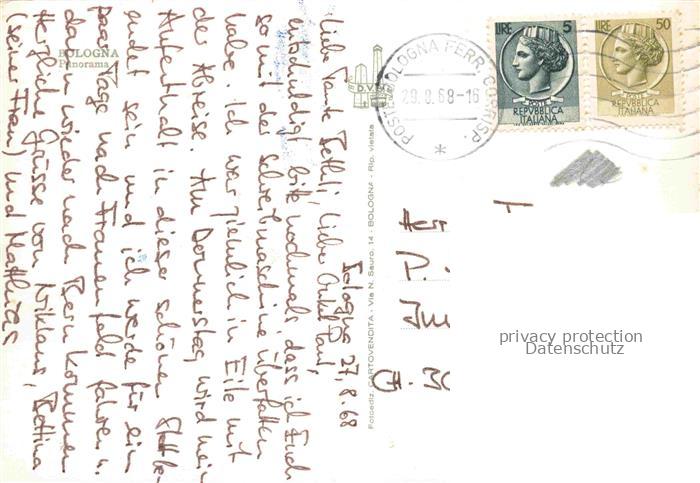 BOLOGNA
Panorama
Bologna 27.8.68
Liebe Tante BetHli, lieber Onkel Paul,
entschuldigt bitte nochmals, dass ich Euch
so mit der Schreibmaschine überfallen
habe. Ich war ziemlich in Eile mit
der Abreise. Am Donnerstag wird mein
Aufenthalt in dieser schönen Stadt be-
endet sein und ich werde für ein
paar Tage nach Frauenfeld fahren u.
dann wieder nach Bern kommen
Herzliche Grüsse von Niklaus, Bettina
(seiner Frau) und Matthias
D.V.
Fotoediz. CARTOVENDITA - Via N. Sauro, 14 - BOLOGNA - Rip. vietata
POSTE BOLOGNA FERR. CORRISP.
29.8.68-16
LIRE 5
POSTE
REPVBBLICA
ITALIANA
LIRE 50
POSTE
REPVBBLICA
ITALIANA
Herr
P.
privacy protection
Datenschutz